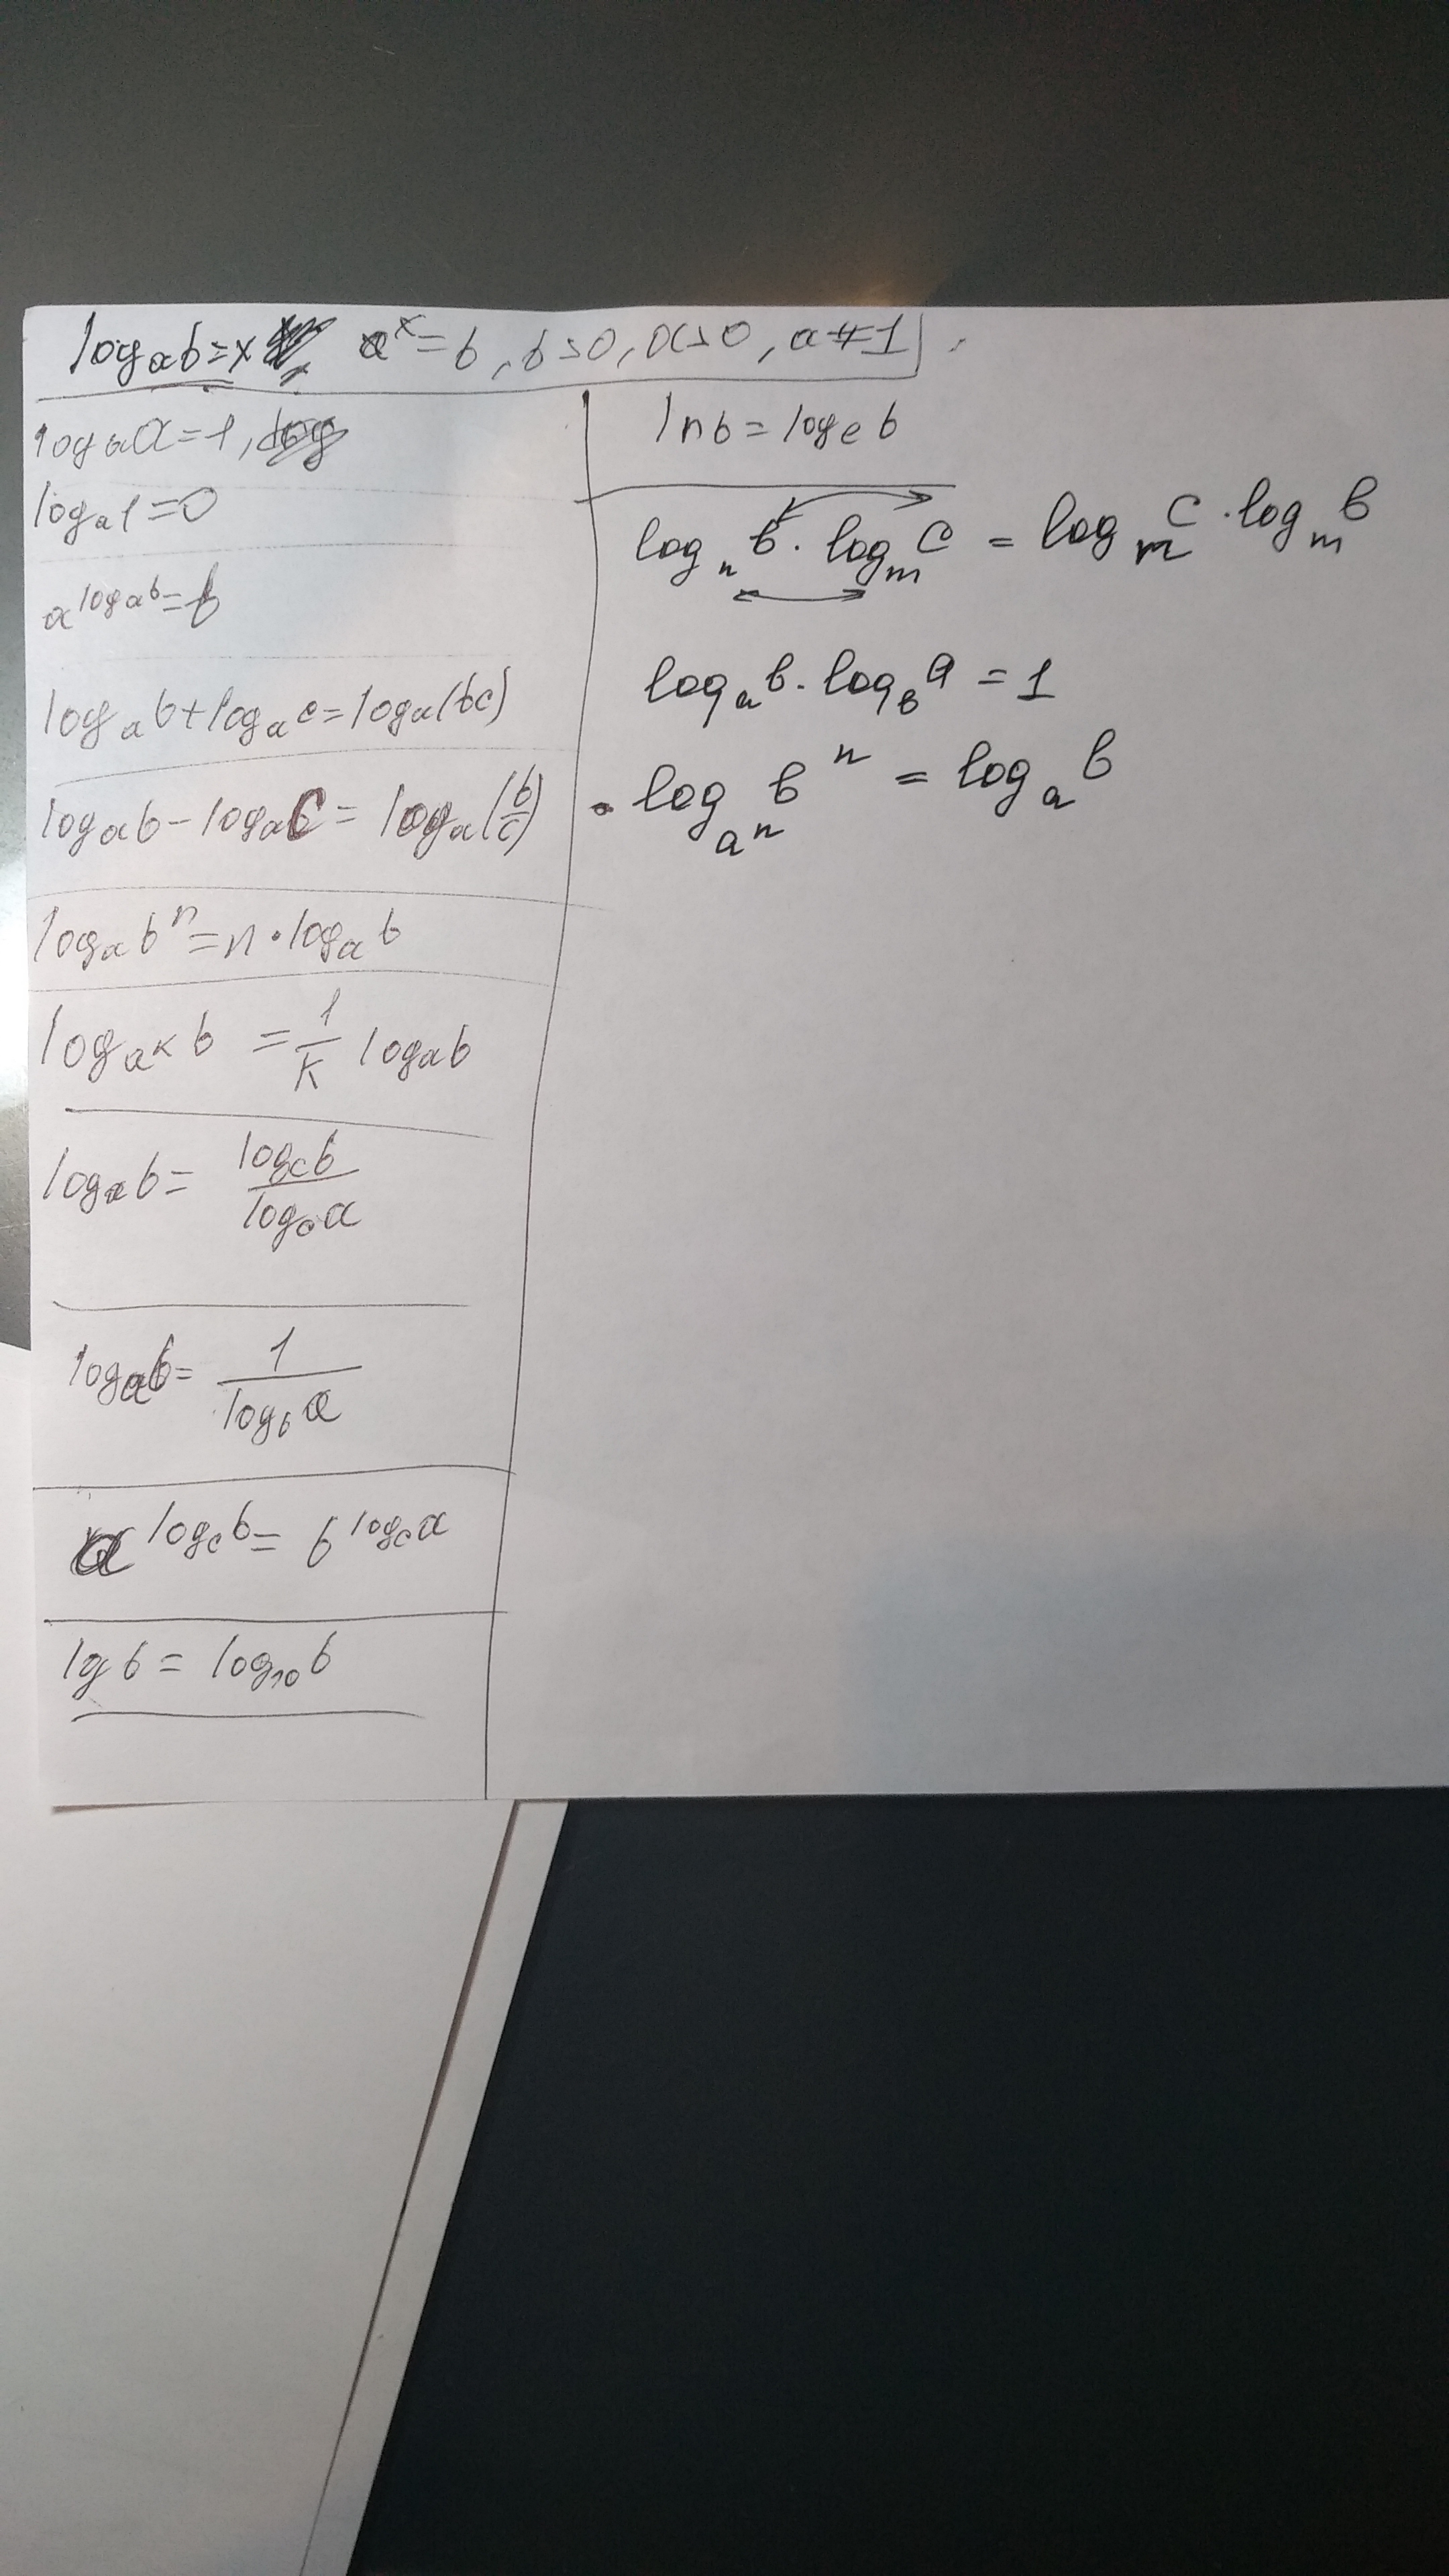 logₐb=x aˣ=b, b>0, a>0, a≠1
logₐa=1, log
logₐ1=0
a^(logₐb)=b
logₐb+logₐc=logₐ(bc)
logₐb-logₐc=logₐ(b/c)
logₐbⁿ=n·logₐb
log_(a^k) b = 1/k logₐb
logₐb= log_c b / log_c a
logₐb= 1 / log_b a
a^(log_c b)= b^(log_c a)
lg b = log₁₀b
ln b = log_e b
log_n b · log_m c = log_n c · log_m b
logₐb · log_b a = 1
• log_(aⁿ) bⁿ = logₐb